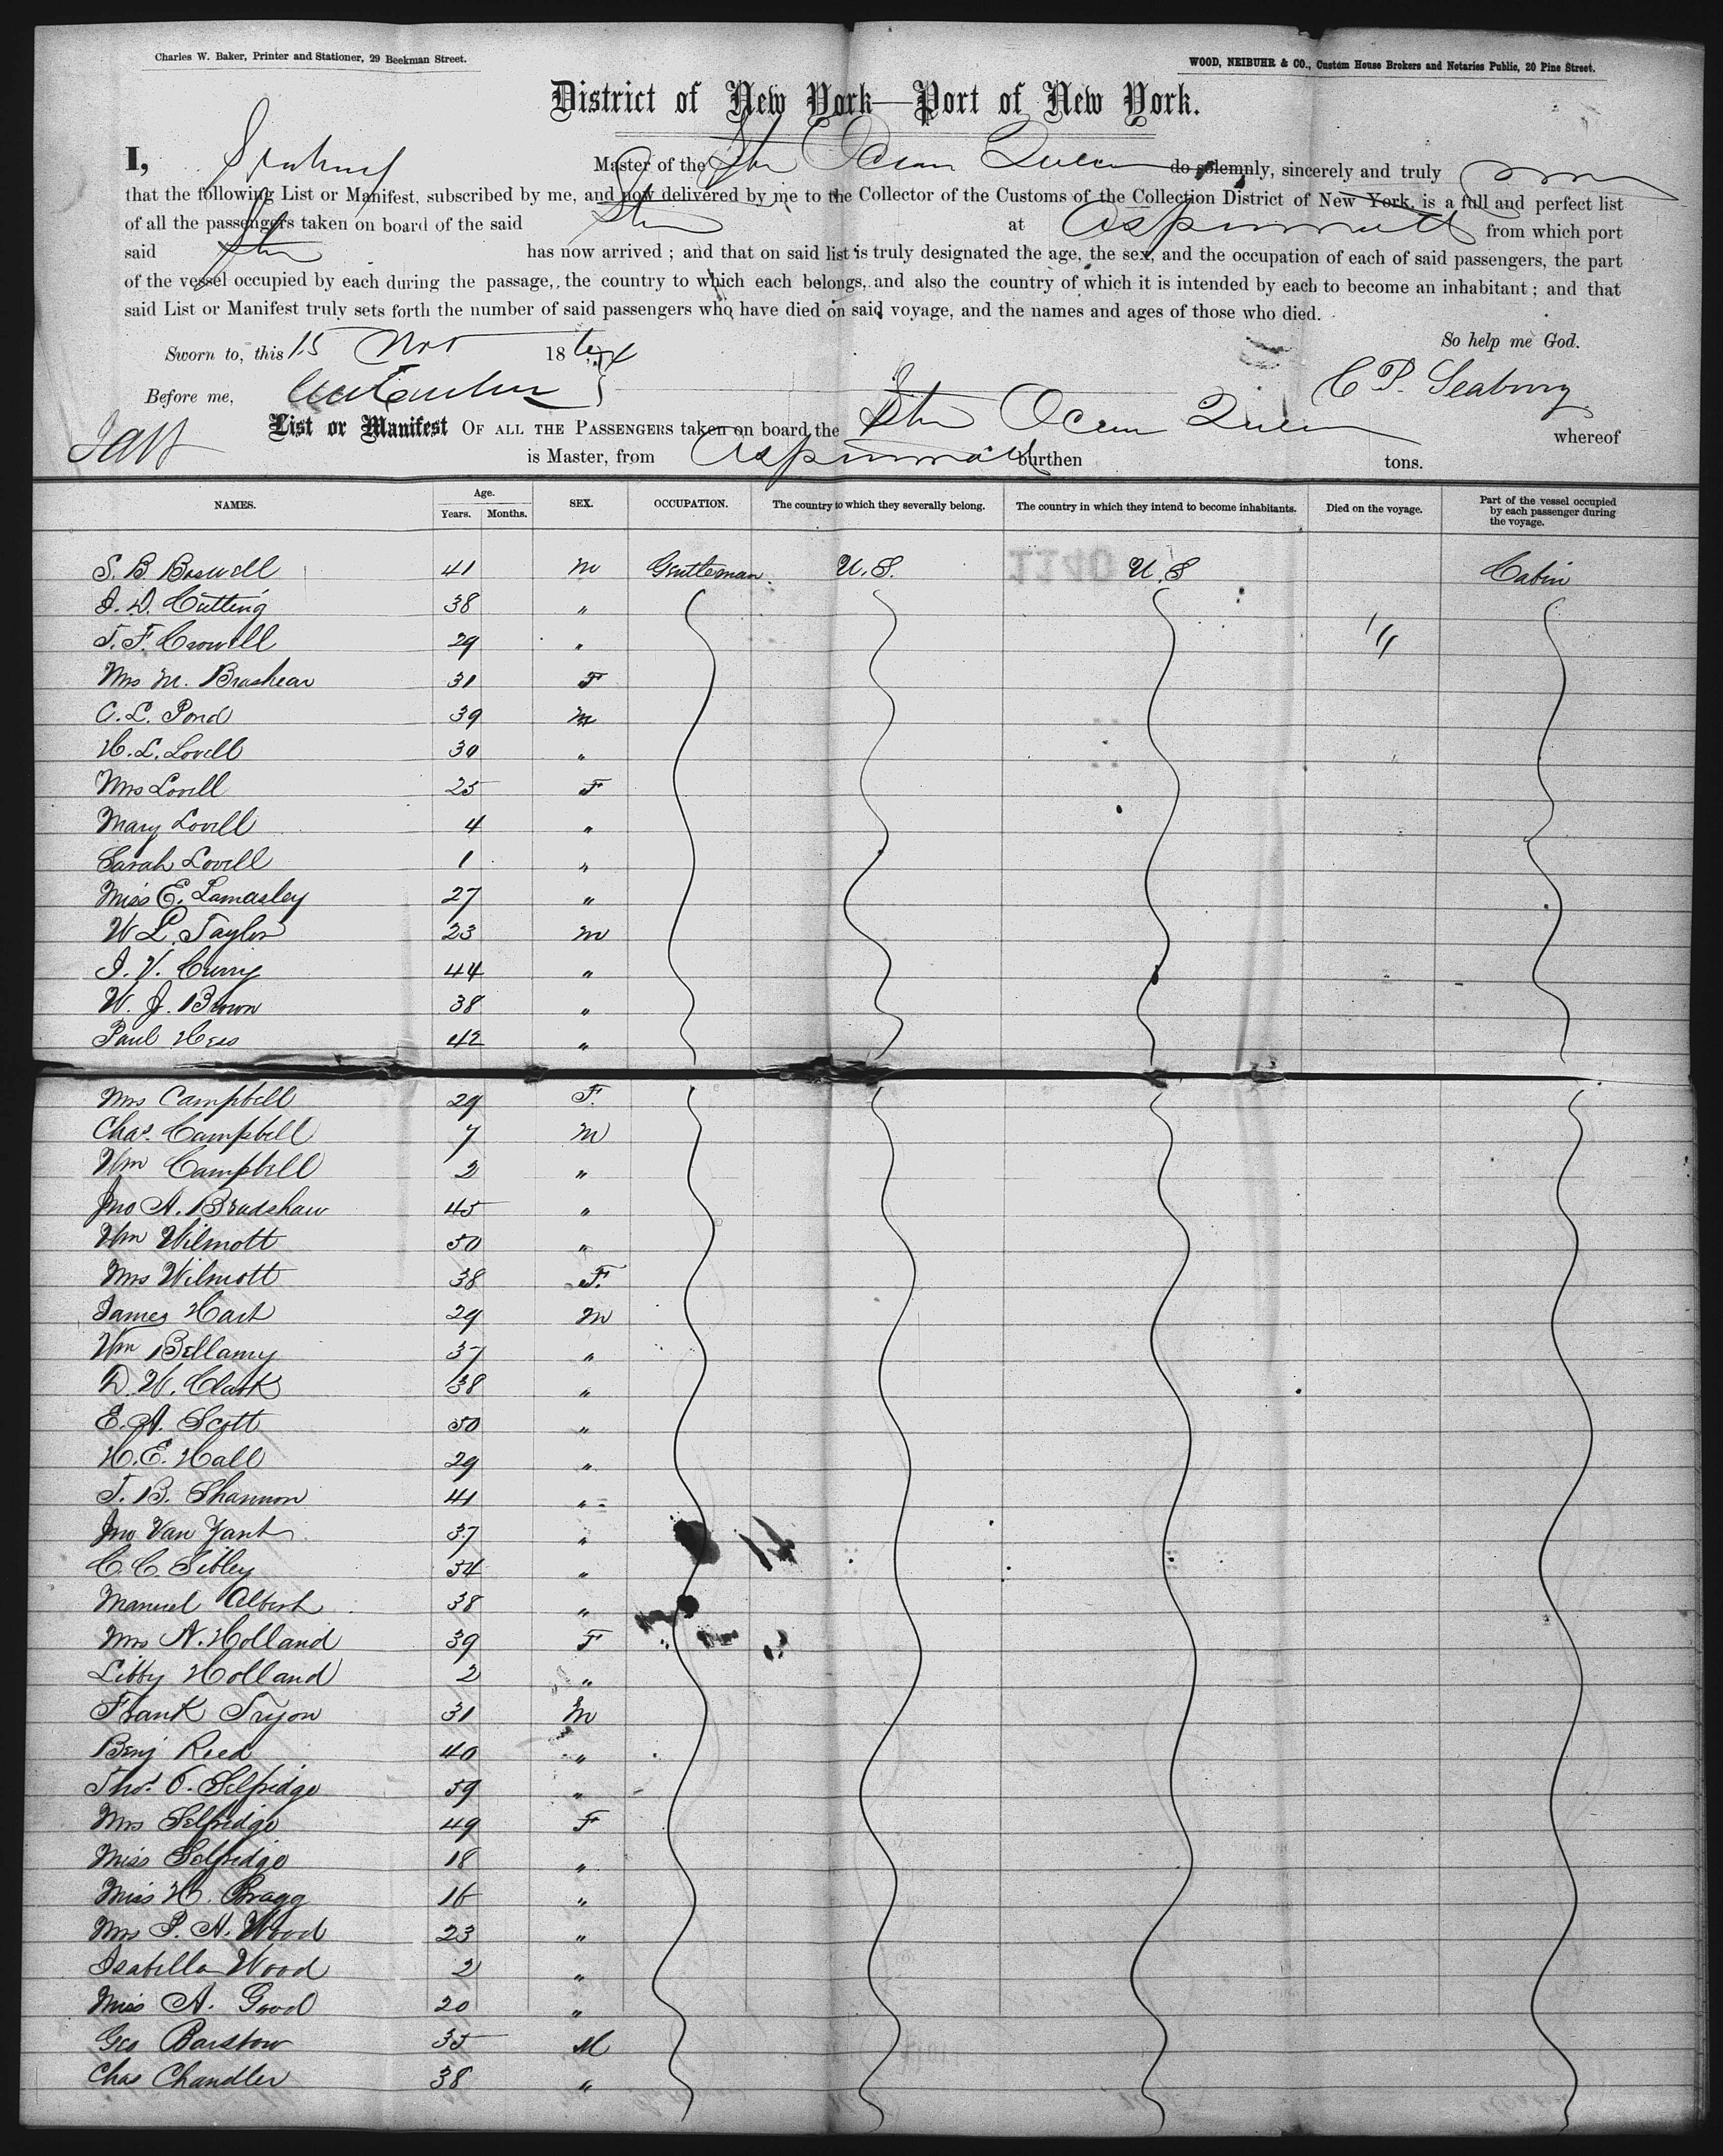 Charles W. Baker, Printer and Stationer, 29 Beekman Street.
WOOD, NEIBUHR & CO., Custom House Brokers and Notaries Public, 20 Pine Street.
District of New York—Port of New York.
I, Seabury Master of the Str Ocean Queen do solemnly, sincerely and truly
that the following List or Manifest, subscribed by me, and now delivered by me to the Collector of the Customs of the Collection District of New York, is a full and perfect list
of all the passengers taken on board of the said Str at Aspinwall from which port
said Str has now arrived ; and that on said list is truly designated the age, the sex, and the occupation of each of said passengers, the part
of the vessel occupied by each during the passage, the country to which each belongs, and also the country of which it is intended by each to become an inhabitant ; and that
said List or Manifest truly sets forth the number of said passengers who have died on said voyage, and the names and ages of those who died.
So help me God.
Sworn to, this 15 Nov 18
Before me,
C P. Seabury
List or Manifest OF ALL THE PASSENGERS taken on board the Str Ocean Queen whereof
is Master, from Aspinwall burthen tons.
NAMES. Age. Years. Months. SEX. OCCUPATION. The country to which they severally belong. The country in which they intend to become inhabitants. Died on the voyage. Part of the vessel occupied by each passenger during the voyage.
1140
S. B. Boswell 41 M Gentleman. U.S. U.S Cabin
J. D. Cutting 38 "
T. F. Crowell 29 "
Mrs M. Brashear 31 F
C. L. Pond 39 M
H. L. Lovell 30 "
Mrs Lovell 25 F
Mary Lovell 4 "
Sarah Lovell 1 "
Miss E. Lamasley 27 "
W L. Taylor 23 M
J. V. Curry 44 "
W. J. Brown 38 "
Paul Hess 42 "
Mrs Campbell 29 F.
Chas. Campbell 7 M
Wm Campbell 2 "
Jno A. Bradshaw 45 "
Wm Wilmott 50 "
Mrs Wilmott 38 F.
James Hart 29 M
Wm Bellamy 37 "
D. W. Clark 38 "
E. A. Scott 50 "
H. E. Hall 29 "
T. B. Shannon 41 "
Jno Van Zant 37 "
C. C. Sibley 54 "
Manuel Albert 38 "
Mrs N. Holland 39 F
Libby Holland 2 "
Frank Tryon 31 M
Benj Reed 40 "
Thos. O. Selfridge 59 "
Mrs Selfridge 49 F
Miss Selfridge 18 "
Miss H. Bragg 16 "
Mrs P. A. Wood 23 "
Isabella Wood 2 "
Miss A. Good 20 "
Geo Barstow 35 M
Chas Chandler 38 "